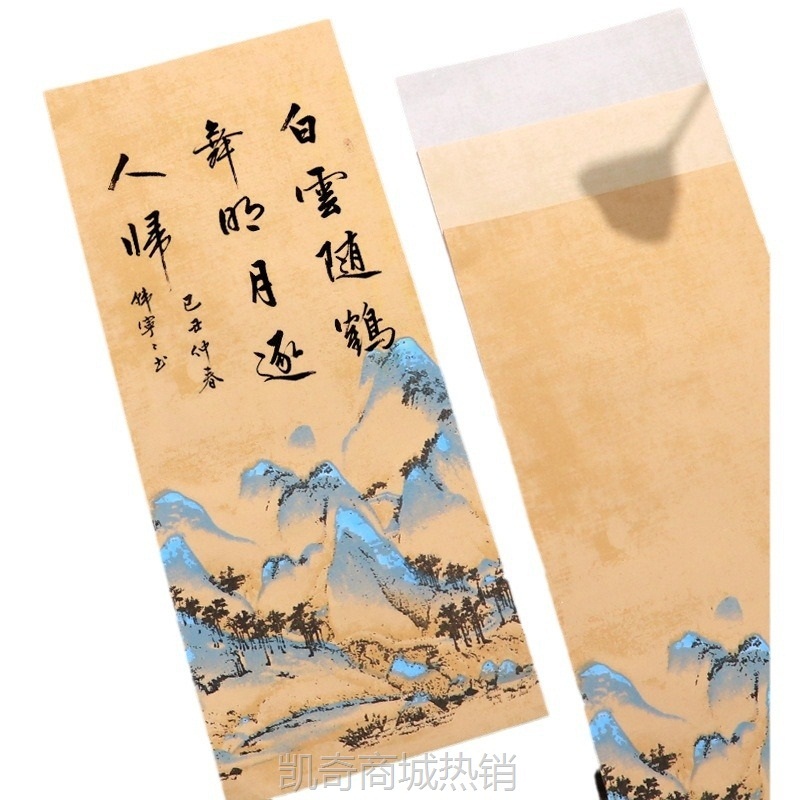 白雲随鶴
舞明月逐
人歸
己丑仲春
韩寧寧书
凯奇商城热销